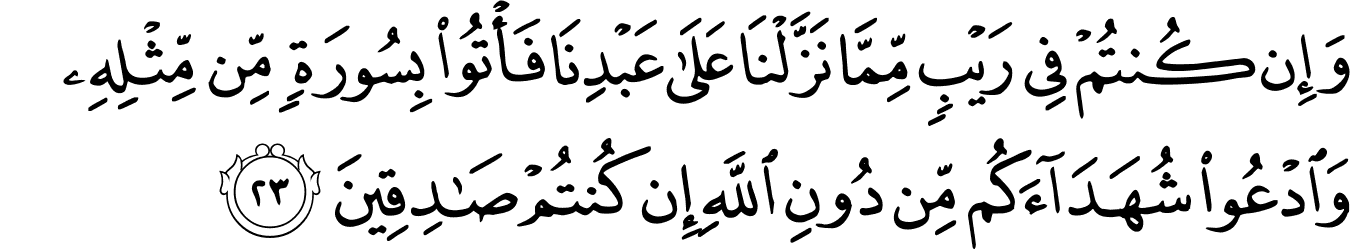 وَإِن كُنتُمْ فِى رَيْبٍ مِّمَّا نَزَّلْنَا عَلَىٰ عَبْدِنَا فَأْتُوا۟ بِسُورَةٍ مِّن مِّثْلِهِۦ
وَٱدْعُوا۟ شُهَدَآءَكُم مِّن دُونِ ٱللَّهِ إِن كُنتُمْ صَـٰدِقِينَ ٢٣